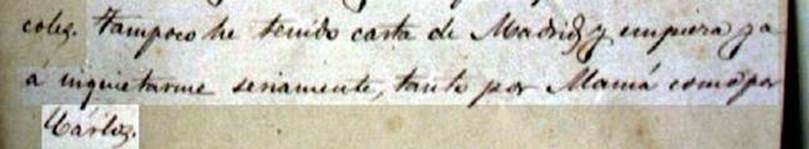 coles. Tampoco he tenido carta de Madrid y empieza ya
á inquietarme seriamente, tanto por Mamá como por
Cárlos.